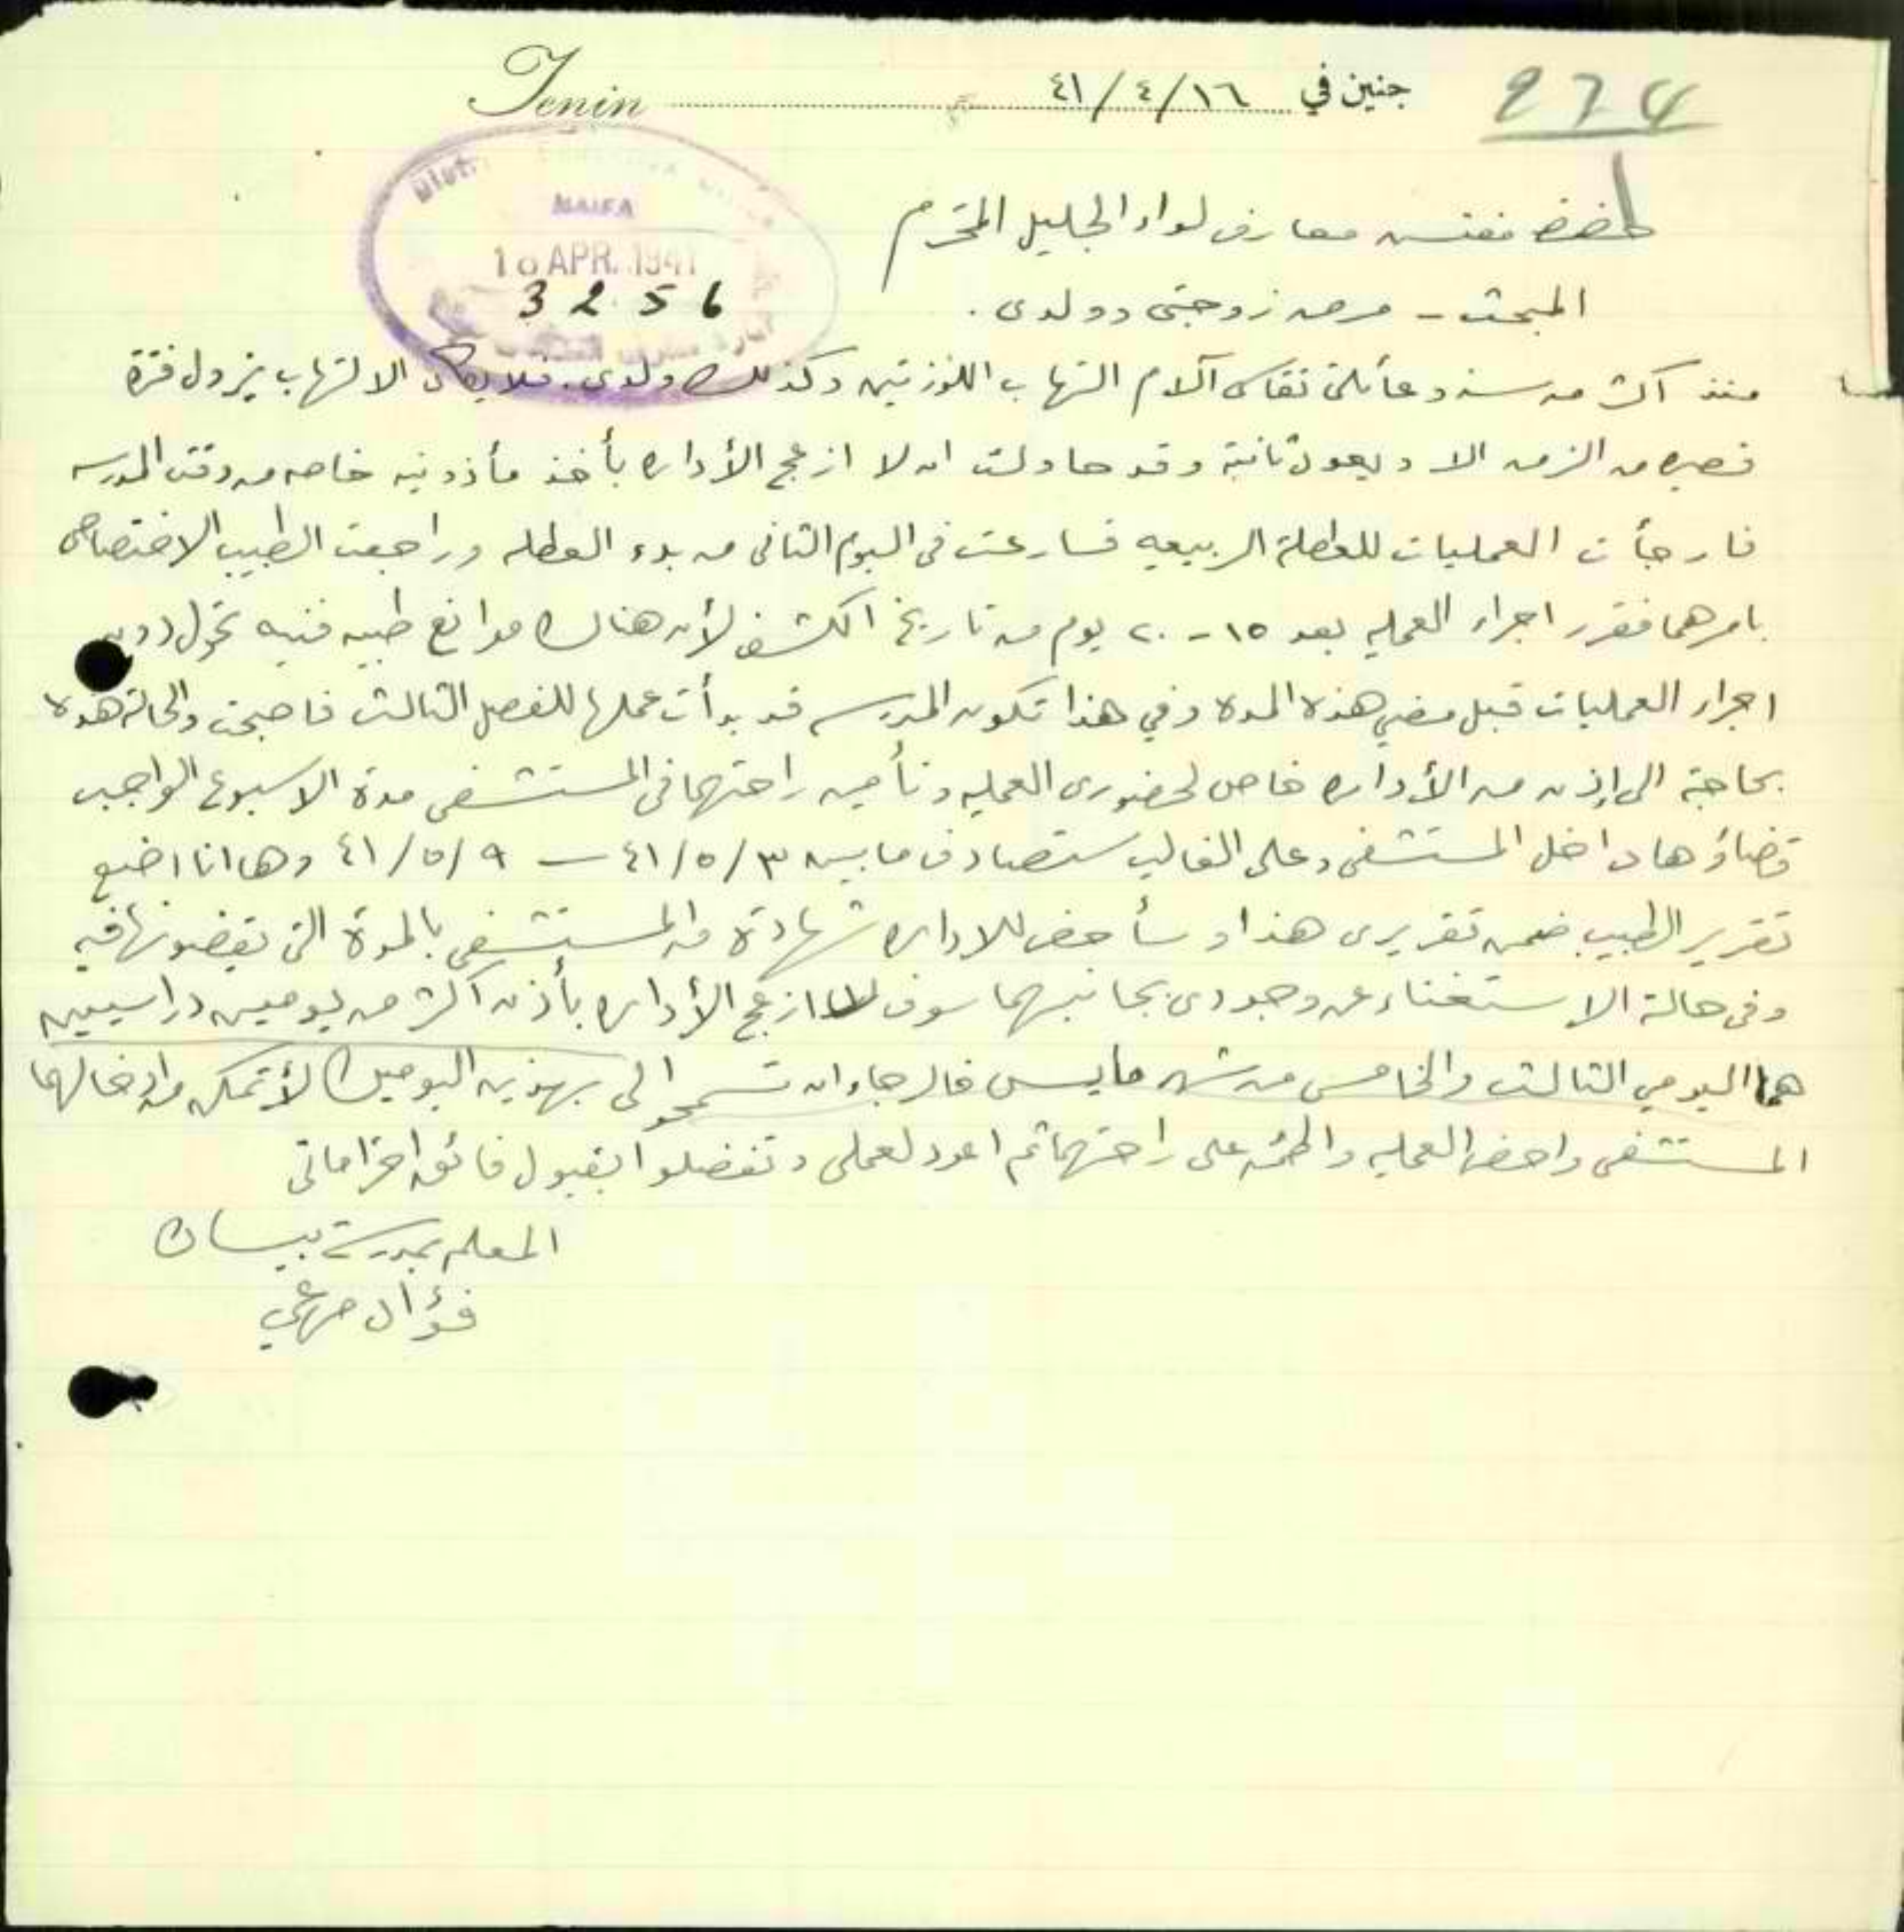 274
Jenin جنين في ١٦/٤/٤١
HAIFA
18 APR. 1941
3256
لحضرة مفتش معارف لواء الجليل المحترم
المبحث - مرض زوجتي وولدي .
منذ اكثر من سنه وعائلتي تقاسي آلام التهاب اللوزتين وكذلك ولدي. فلا يكاد الالتهاب يزول فترة
قصيره من الزمن الا ويعود ثانية وقد حاولت ان لا ازعج الأداره بأخذ مأذونيه خاصه من وقت المدرسه
فارجأت العمليات للعطلة الربيعيه فسارعت في اليوم الثاني من بدء العطله وراجعت الطبيب الاختصاصي
بامرهما فقرر اجراء العمليه بعد ١٥ - ٢٠ يوم من تاريخ الكشف لأن هناك موانع طبيه فنيه تحول دون
اجراء العمليات قبل مضي هذه المدة وفي هذا تكون المدرسه قد بدأت عملها للفصل الثالث فاصبحت والحالة هذه
بحاجة الى إذن من الأداره خاص لحضوري العمليه وتأمين راحتهما في المستشفى مدة الاسبوع الواجب
قضاؤها داخل المستشفى وعلى الغالب ستصادف ما بين ٤١/٥/٣ – ٤١/٥/٩ وها انا اضع
تقرير الطبيب ضمن تقريري هذا وسأحضر للاداره شهادة من المستشفى بالمدة التي يقضونها فيه
وفي حالة الاستغناء عن وجودي بجانبهما سوف لا ازعج الأداره بأذن اكثر من يومين دراسيين
هما اليومي الثالث والخامس من شهر مايس فالرجاء ان تسمحوا لي بهذين اليومين لأتمكن من ادخالهما
المستشفى واحضر العمليه واطمئن على راحتهما ثم اعود لعملي وتفضلوا بقبول فائق احتراماتي
المعلم بمدرسة بيسان
فؤاد مرعي